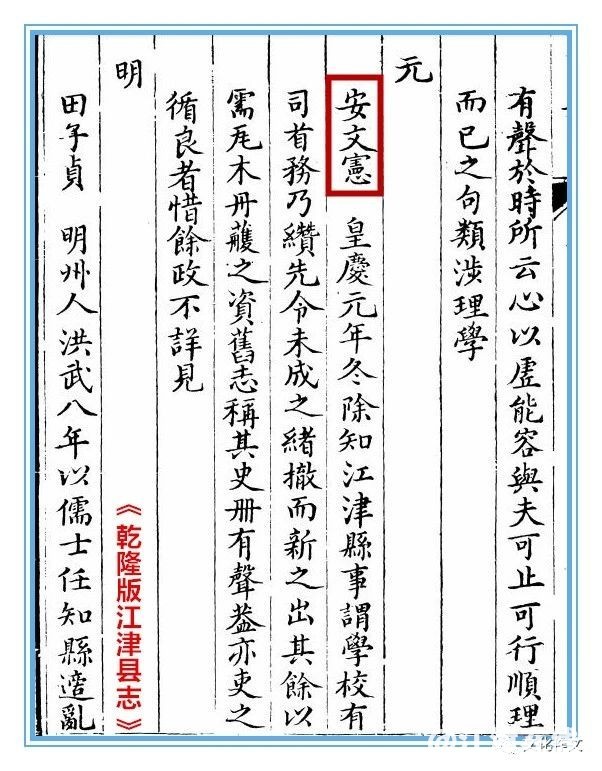 有聲於時所云心以虛能容與夫可止可行順理
而已之句類涉理學
元
安文憲 皇慶元年冬除知江津縣事謂學校有
司首務乃纘先令未成之緒撤而新之出其餘以
需瓦木丹雘之資舊志稱其史册有聲葢亦吏之
循良者惜餘政不詳見
明
田子貞 明州人洪武八年以儒士任知縣遭亂
《乾隆版江津县志》